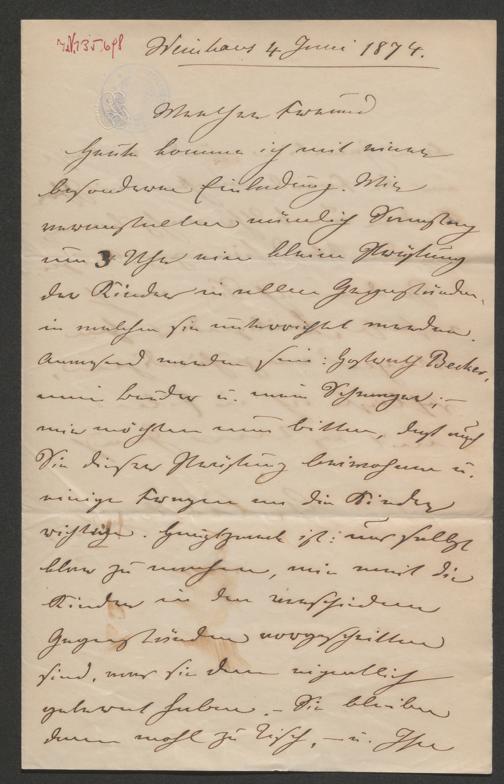 I.N. 135.698
Weinhaus 4 Juni 1874.
Werther Freund
Heute komme ich mit einer
besonderen Einladung. Wir
veranstalten nämlich Sonntag
um 3 Uhr eine kleine Prüfung
der Kinder in allen Gegenständen,
in welchen sie unterrichtet werden.
Anwesend werden sein: Hofrath Becker,
mein Bruder u. mein Schwager; –
wir möchten nun bitten, daß auch
Sie dieser Prüfung beiwohnen u.
einige Fragen an die Kinder
richten. Hauptzweck ist: uns selbst
klar zu machen, wie weit die
Kinder in den verschiedenen
Gegenständen vorgeschritten
sind, was sie denn eigentlich
gelernt haben. – Sie bleiben
dann wohl zu Tisch, – u. Ihre